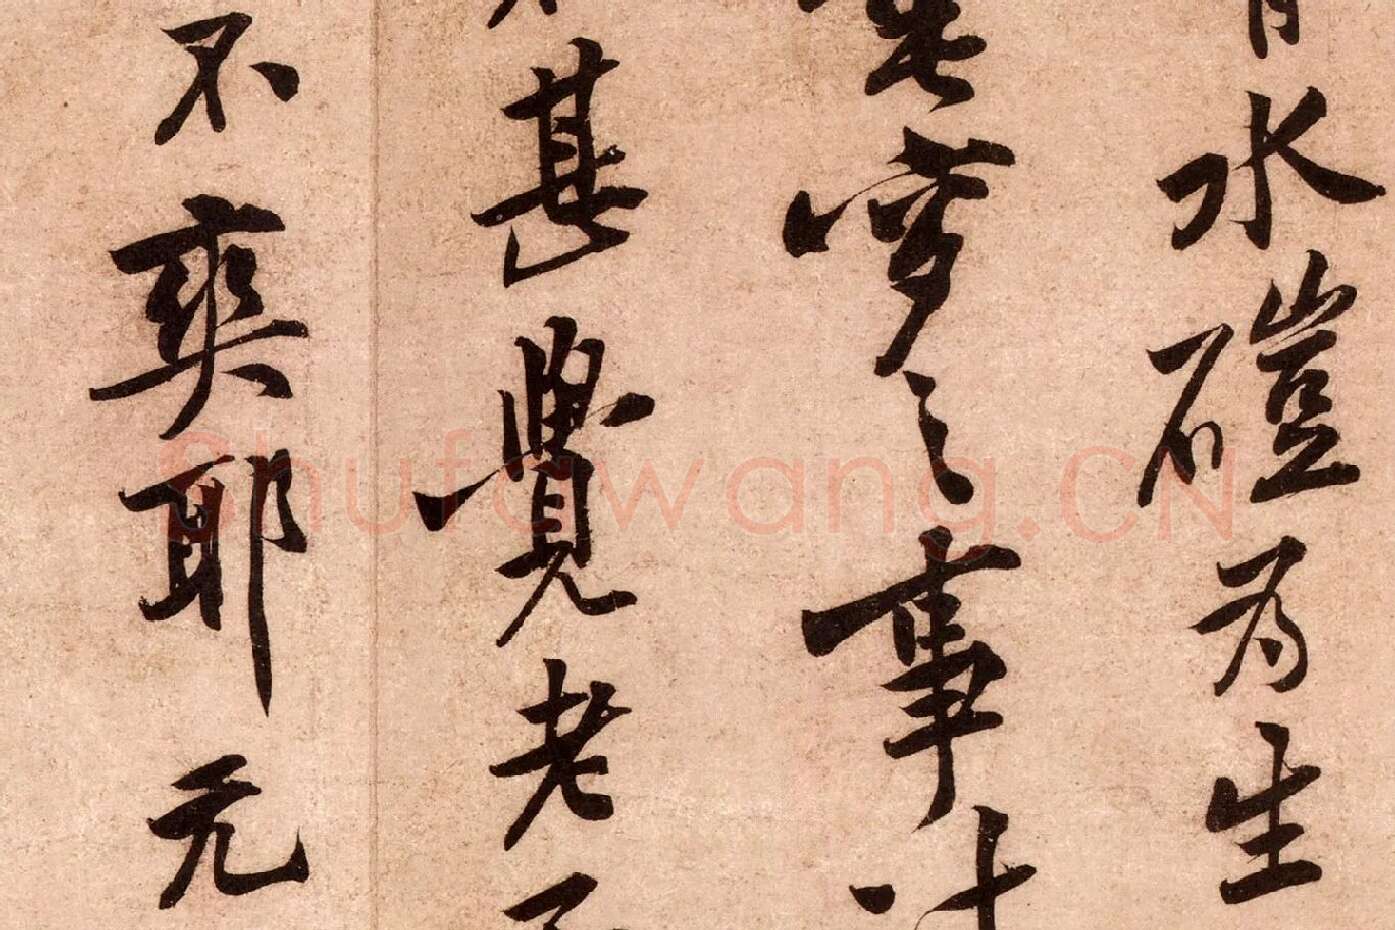 水磑為生
夢之事
甚覺老
不爽耶元
Shufawang.CN